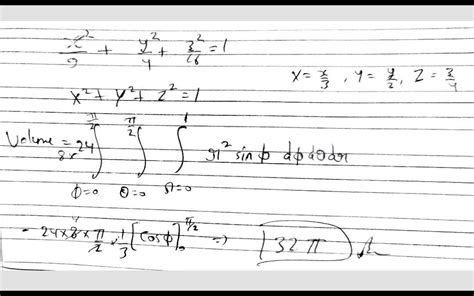 x²/9 + y²/4 + z²/16 = 1
X = x/3 , Y = y/2 , Z = z/4
X² + Y² + Z² = 1
Volume = 8× 24 ∫_{ϕ=0}^{π/2} ∫_{θ=0}^{π/2} ∫_{r=0}^{1} r² sin ϕ dϕ dθ dr
= 24×8×π/2 × 1/3 [cos ϕ]_0^{π/2} ⇒ 32π